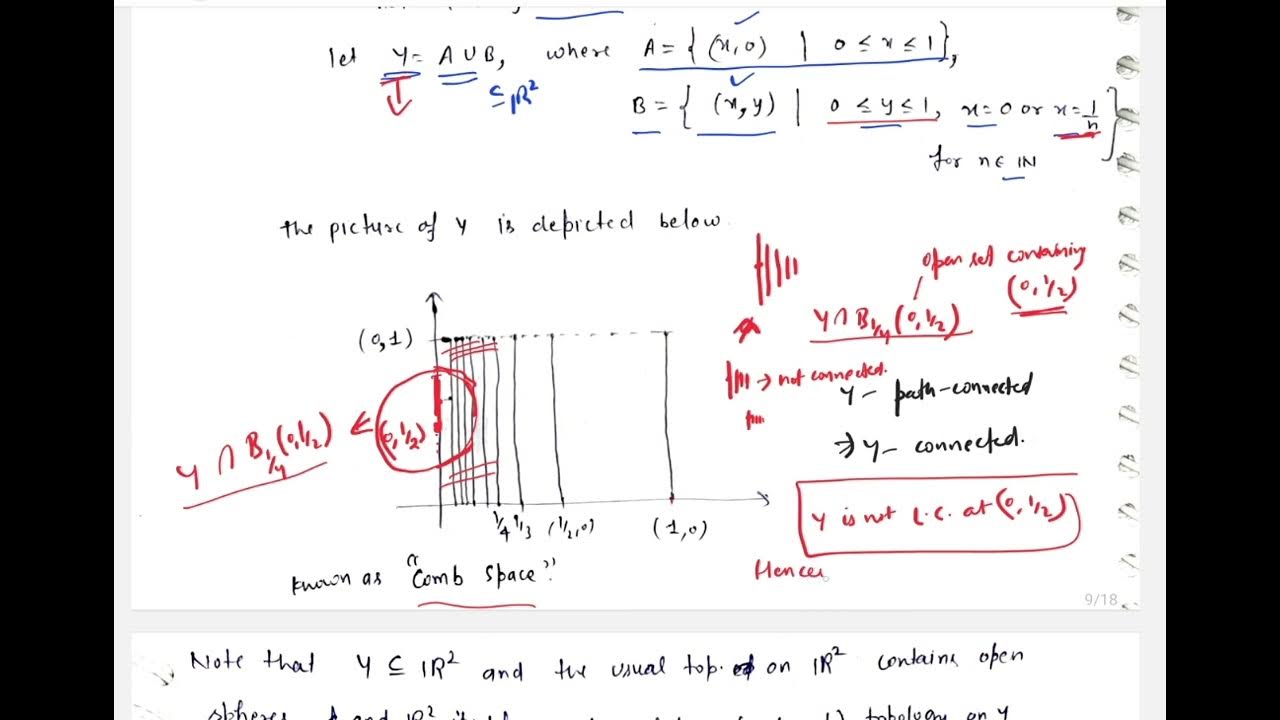 let Y = A ∪ B, where A = { (x, 0) | 0 ≤ x ≤ 1 },
⊆ IR²
B = { (x, y) | 0 ≤ y ≤ 1, x = 0 or x = 1/n }
for n ∈ IN
The picture of Y is depicted below.
open set containing
(0, 1/2)
Y ∩ B_{1/4} (0, 1/2)
(0, 1)
→ not connected.
Y - path-connected
Y ∩ B_{1/4} (0, 1/2)
(0, 1/2)
⇒ Y - connected.
Y is not L.C. at (0, 1/2)
1/4 1/3 (1/2, 0) (1, 0)
Hence
known as "Comb Space".
9/18
Note that Y ⊆ IR² and the usual top. on IR² contains open
spheres topology on Y